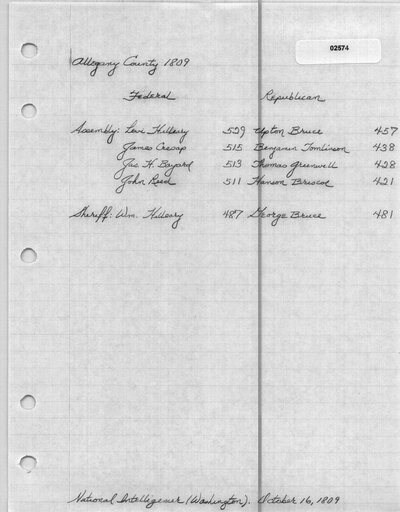 02574
Allegany County 1809
Federal Republican
Assembly: Levi Hilleary 529 Upton Bruce 457
James Cresap 515 Benjamin Tomlinson 438
Jas. H. Bayard 513 Thomas Greenwell 428
John Reed 511 Hanson Briscoe 421
Sheriff: Wm. Hilleary 487 George Bruce 481
National Intelligencer (Washington). October 16, 1809